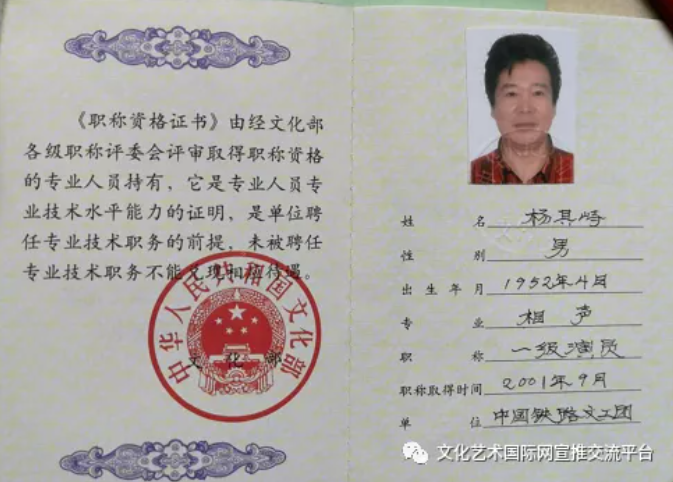 《职称资格证书》由经文化部
各级职称评委会评审取得职称资格
的专业人员持有，它是专业人员专
业技术水平能力的证明，是单位聘
任专业技术职务的前提，未被聘任
专业技术职务不能兑现相应待遇。
中华人民共和国文化部
文化部
姓名 杨其峙
性别 男
出生年月 1952年4月
专业 相声
职称 一级演员
职称取得时间 2001年9月
单位 中国铁路文工团
文化艺术国际网宣推交流平台